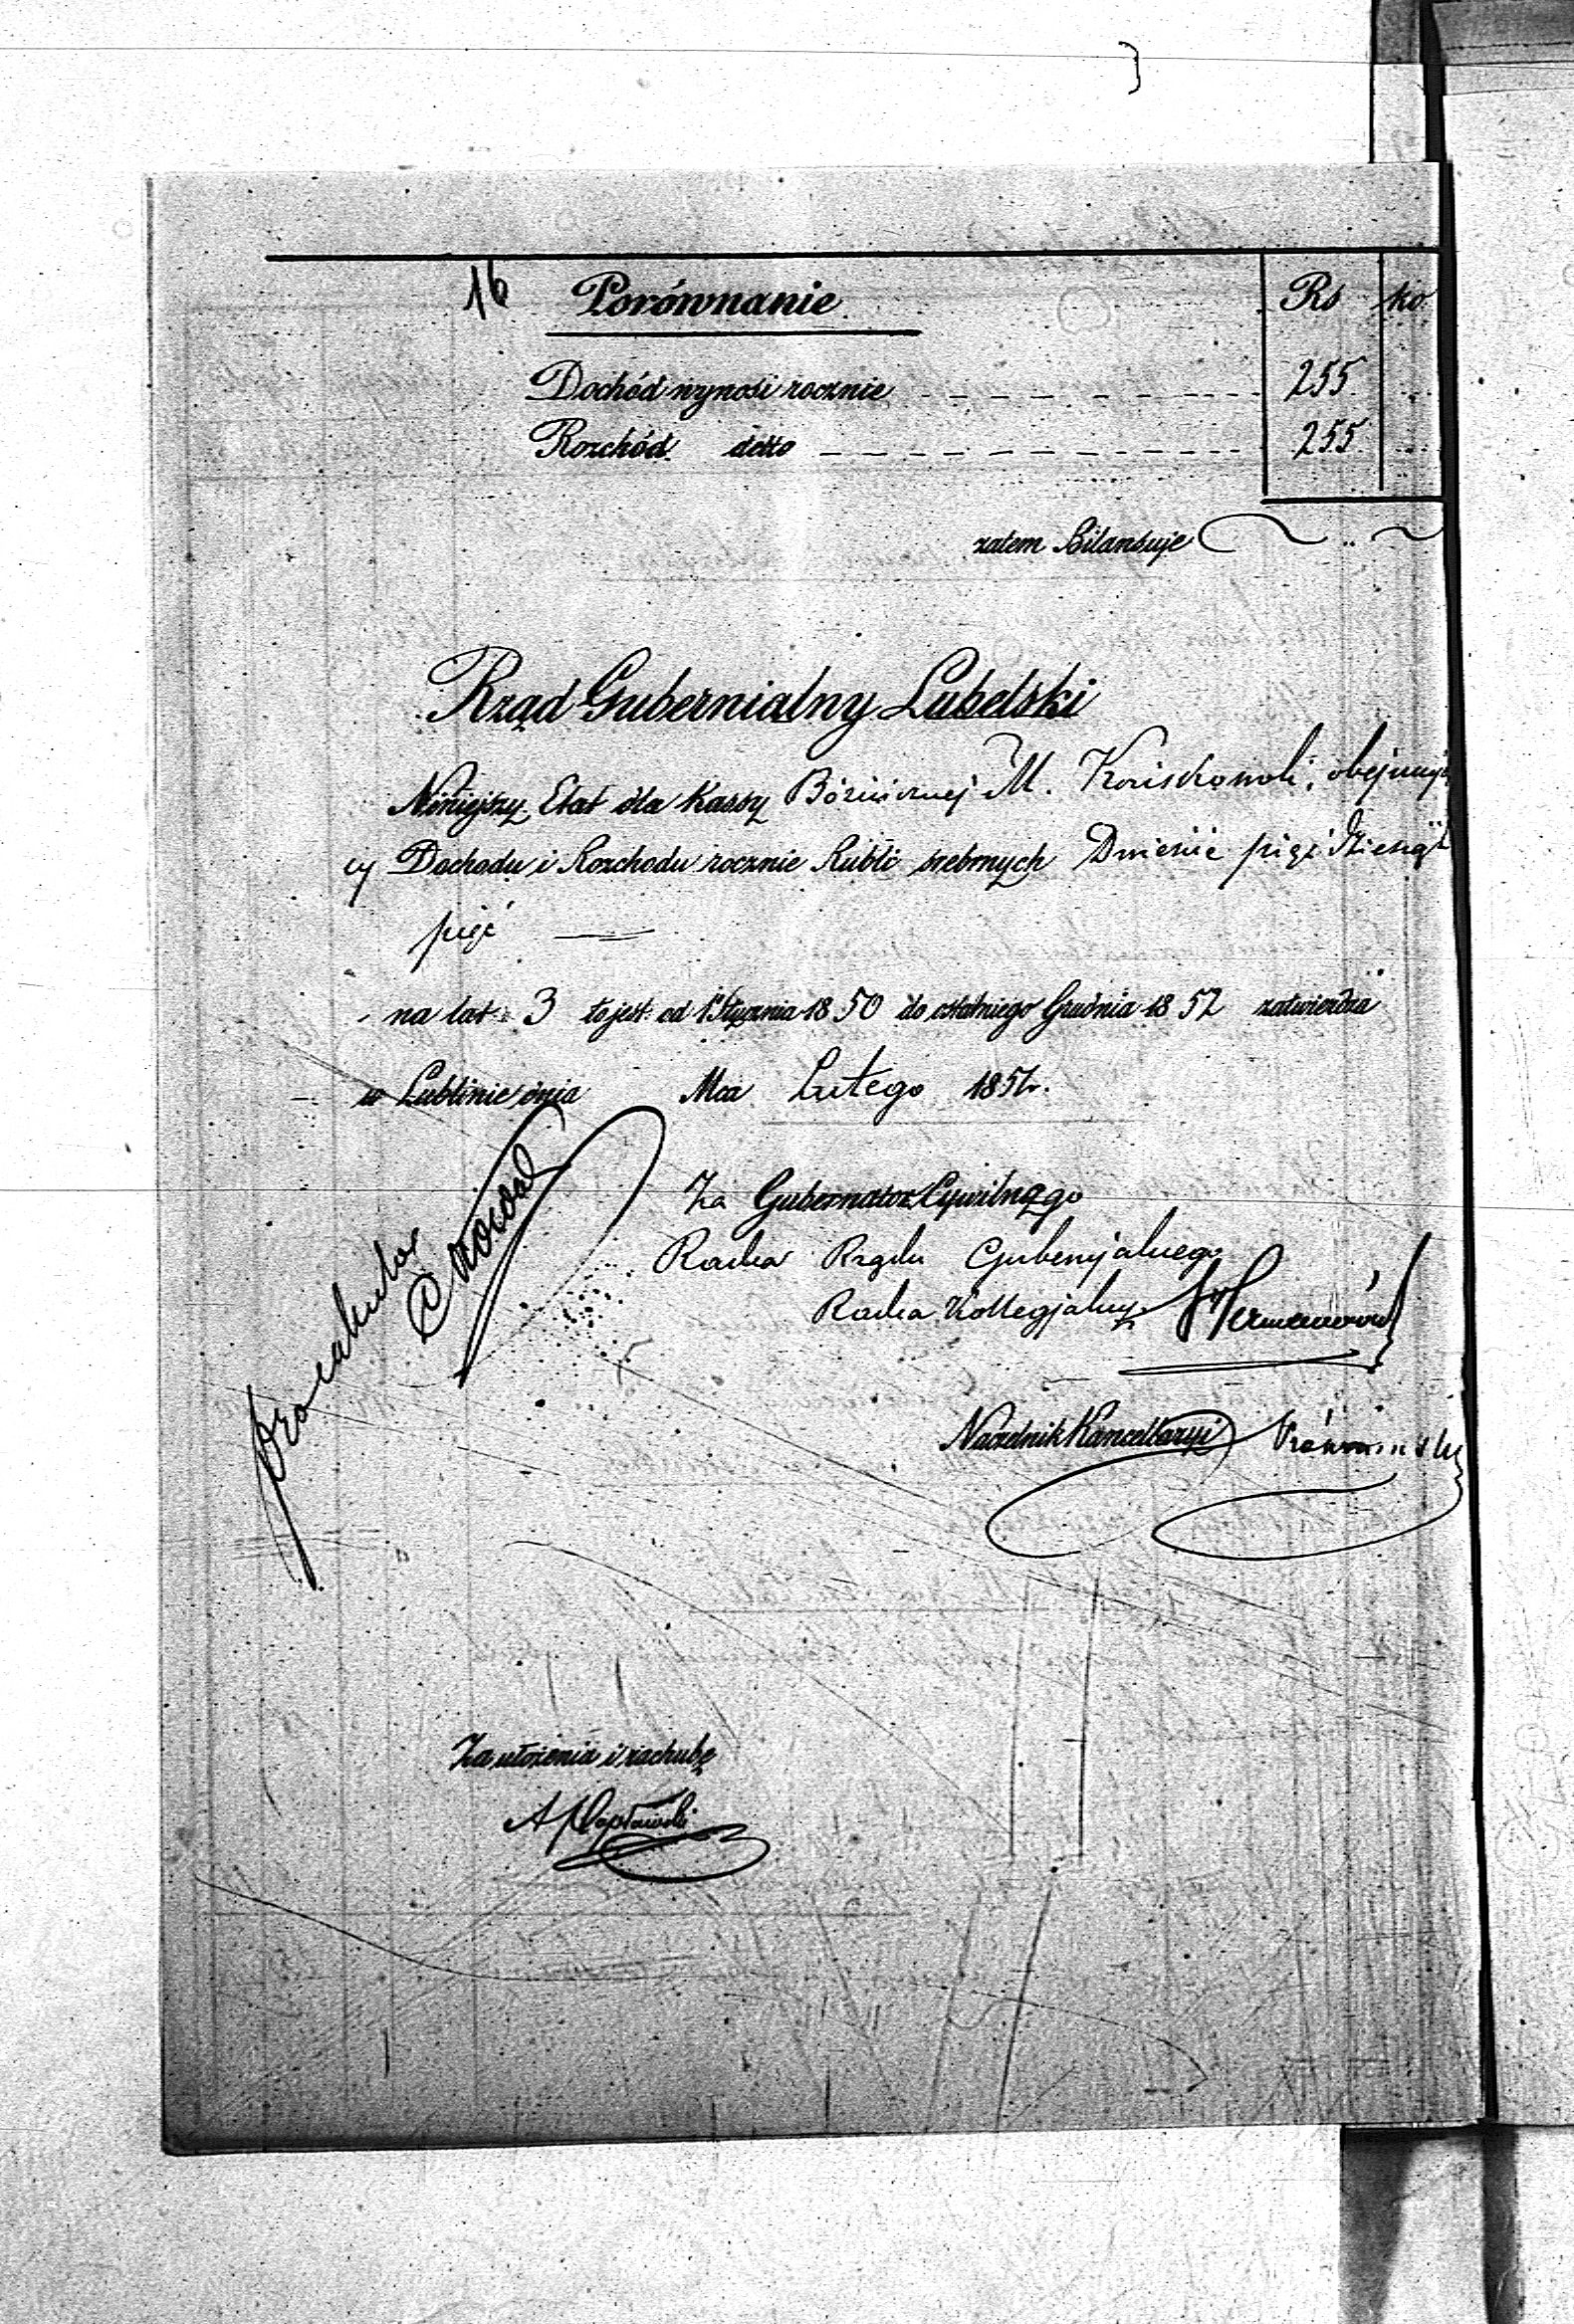 16 Porównanie Rs ko
Dochód wynosi rocznie 255
Rozchód detto 255
zatem Bilansuje
Rząd Gubernialny Lubelski
Niniejszy Etat dla Kassy Bóźnicznej M. Końskowoli, obejmują
cy Dochodu i Rozchodu rocznie Rubli srebrnych Dwieście pięćdziesiąt
pięć
na lat 3 to jest od 1 Stycznia 1850 do ostatniego Grudnia 1852 zatwierdza
w Lublinie dnia Mca Lutego 1851 r.
Za Gubernatora Cywilnego
Radca Rządu Gubernjalnego
Radca Kollegjalny
Naczelnik Kancellaryi
Za ułożenia i rachubę